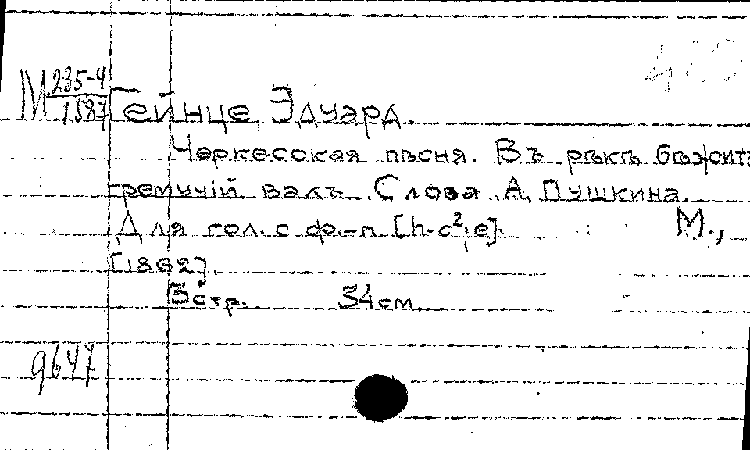 М 235-4
1587
Гейнце, Эдуард.
Черкесская пѣсня. Въ рѣкѣ бѣжитъ
гремучій валъ. Слова А. Пушкина.
Для гол. с ф.-п. [h-c²,e]. М.,
[1862].
5 стр. 34 см.
9647